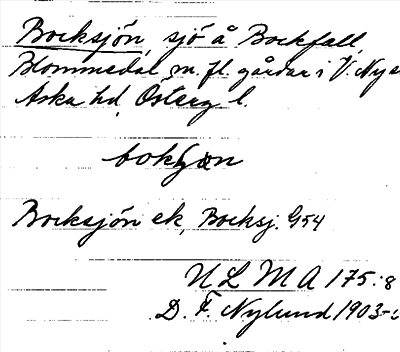 Bocksjön, sjö å Bockfall,
Blommedal m. fl. gårdar i V. Ny s
Aska hd, Österg l.
Bocksjön ek, Bocksj. G54
ULMA 175:8
D. F. Nylund 1903-